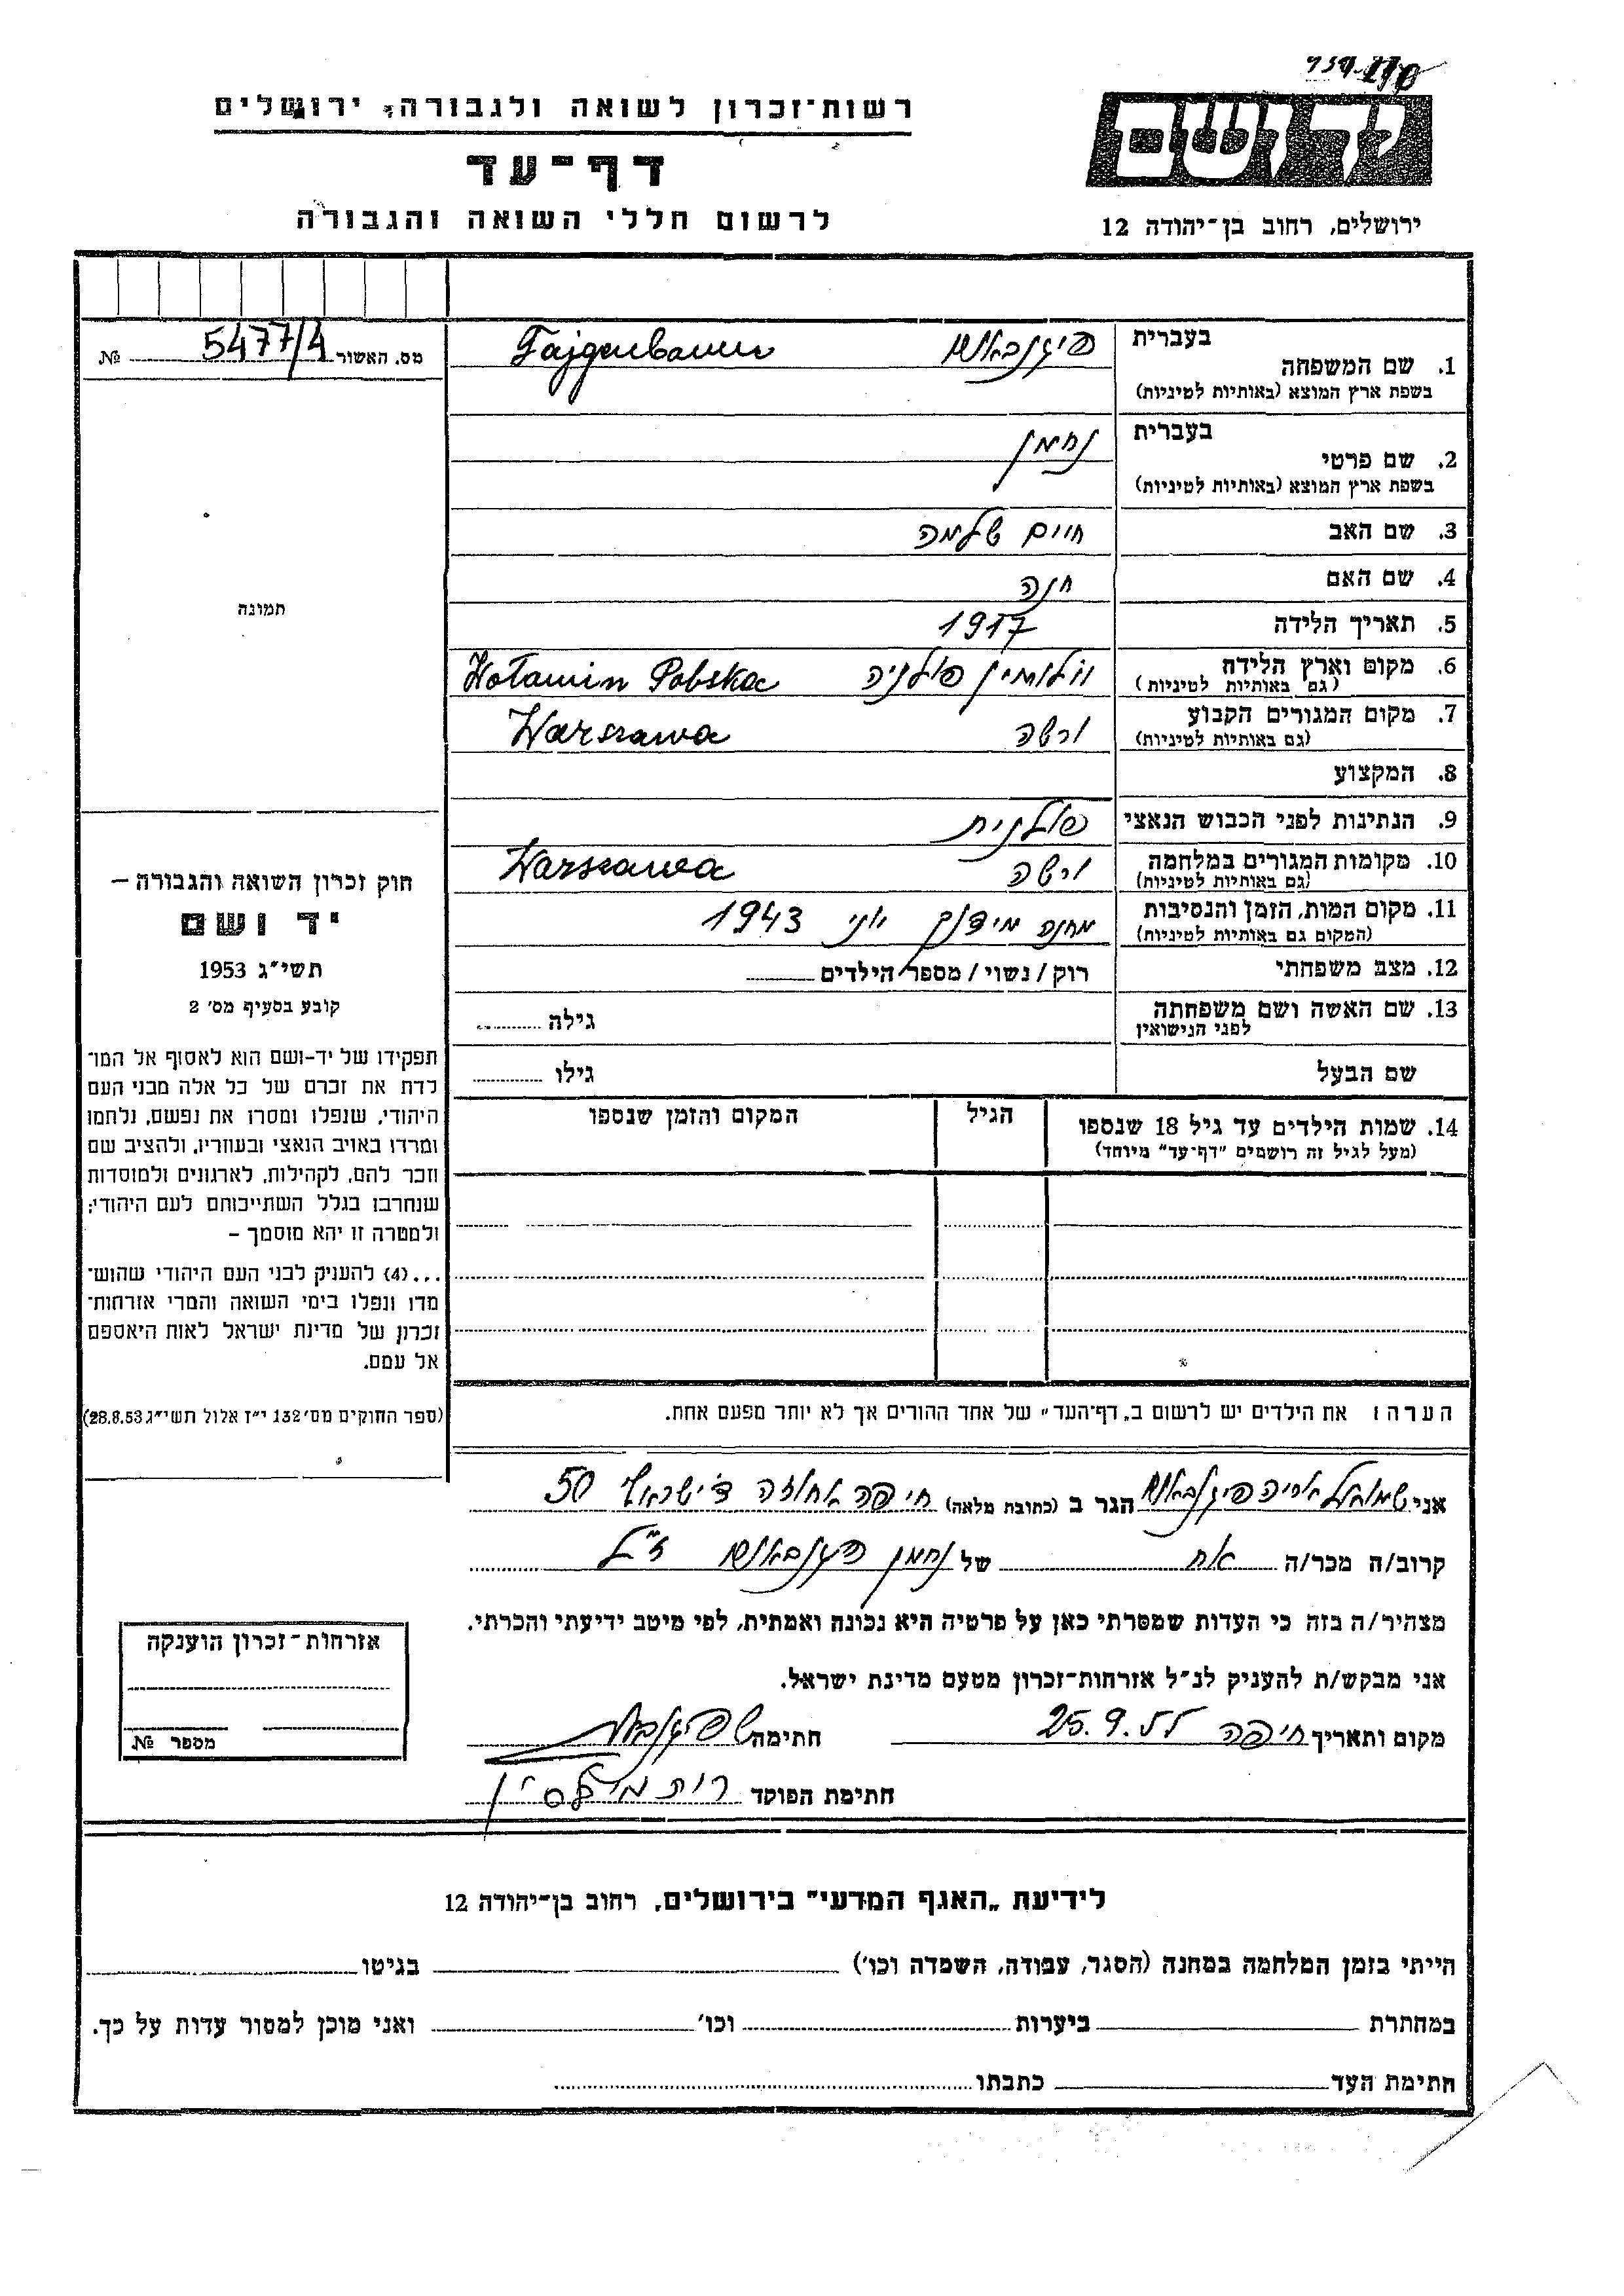 רשות־זכרון לשואה ולגבורה, ירושלים
דף־עד
לרשום חללי השואה והגבורה
יד ושם
ירושלים, רחוב בן־יהודה 12
מס. האשור 5477/4 №
תמונה
בעברית פיגנבאום Fajgenbaum
1. שם המשפחה
בשפת ארץ המוצא (באותיות לטיניות)
בעברית נחמן
2. שם פרטי
בשפת ארץ המוצא (באותיות לטיניות)
3. שם האב חיים שלמה
4. שם האם חנה
5. תאריך הלידה 1917
6. מקום וארץ הלידה וולומין פולניה Wołamin Polska
(גם באותיות לטיניות)
7. מקום המגורים הקבוע ורשה Warszawa
(גם באותיות לטיניות)
8. המקצוע
9. הנתינות לפני הכבוש הנאצי פולנית
10. מקומות המגורים במלחמה ורשה Warszawa
(גם באותיות לטיניות)
11. מקום המות, הזמן והנסיבות מחנה מידנק יוני 1943
(המקום גם באותיות לטיניות)
12. מצב משפחתי רוק / נשוי / מספר הילדים
13. שם האשה ושם משפחתה גילה
לפני הנישואין
שם הבעל גילו
14. שמות הילדים עד גיל 18 שנספו הגיל המקום והזמן שנספו
(מעל לגיל זה רושמים "דף־עד" מיוחד)
הערה: את הילדים יש לרשום ב„דף־העד" של אחד ההורים אך לא יותר מפעם אחת.
חוק זכרון השואה והגבורה –
יד ושם
תשי"ג 1953
קובע בסעיף מס׳ 2
תפקידו של יד-ושם הוא לאסוף אל המו־
לדת את זכרם של כל אלה מבני העם
היהודי, שנפלו ומסרו את נפשם, נלחמו
ומרדו באויב הנאצי ובעוזריו, ולהציב שם
וזכר להם, לקהילות, לארגונים ולמוסדות
שנחרבו בגלל השתייכותם לעם היהודי;
ולמטרה זו יהא מוסמך –
...(4) להעניק לבני העם היהודי שהוש־
מדו ונפלו בימי השואה והמרי אזרחות־
זכרון של מדינת ישראל לאות היאספם
אל עמם.
(ספר החוקים מס׳ 132 י"ז אלול תשי"ג 28.8.53)
אני שמואל אריה פיגנבאום הגר ב (כתובת מלאה) חיפה אחוזה ד׳ישראלי 50
קרוב/ה מכר/ה אח של נחמן פיגנבאום ז"ל
מצהיר/ה בזה כי העדות שמסרתי כאן על פרטיה היא נכונה ואמתית, לפי מיטב ידיעתי והכרתי.
אני מבקש/ת להעניק לנ"ל אזרחות־זכרון מטעם מדינת ישראל.
מקום ותאריך חיפה 25.9.55 חתימה ש פיגנבאום
חתימת הפוקד רות
אזרחות־זכרון הוענקה
מספר №
לידיעת „האגף המדעי" בירושלים, רחוב בן־יהודה 12
הייתי בזמן המלחמה במחנה (הסגר, עבודה, השמדה וכו׳) בגיטו
במחתרת ביערות וכו׳ ואני מוכן למסור עדות על כך.
חתימת העד כתבתו